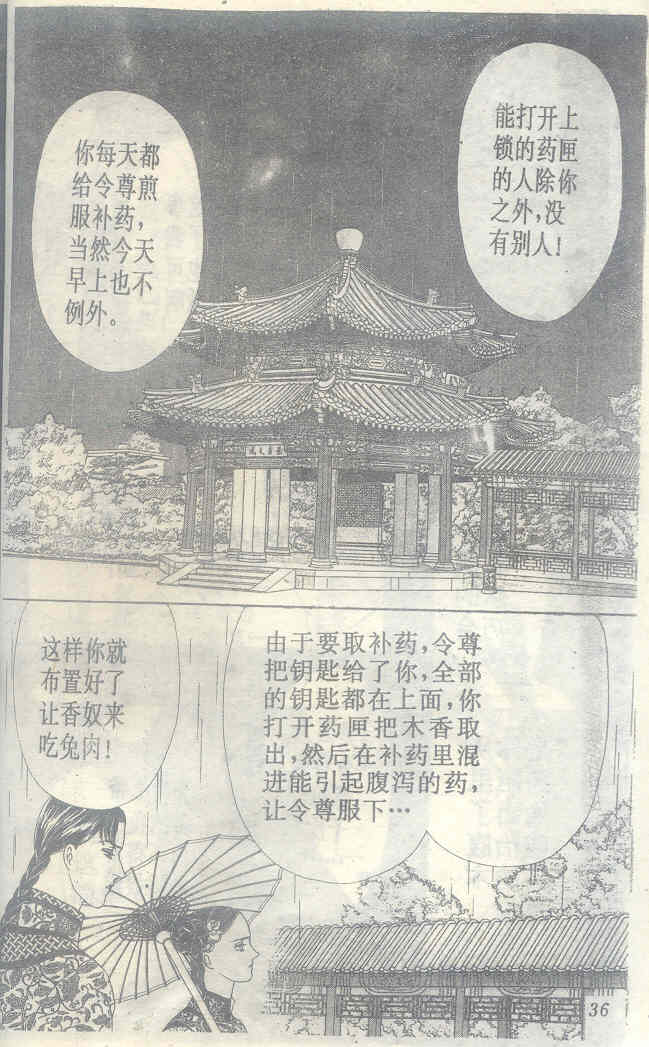 能打开上
锁的药匣
的人除你
之外，没
有别人！
你每天都
给令尊煎
服补药，
当然今天
早上也不
例外。
由于要取补药，令尊
把钥匙给了你，全部
的钥匙都在上面，你
打开药匣把木香取
出，然后在补药里混
进能引起腹泻的药，
让令尊服下…
这样你就
布置好了
让香奴来
吃兔肉！
36